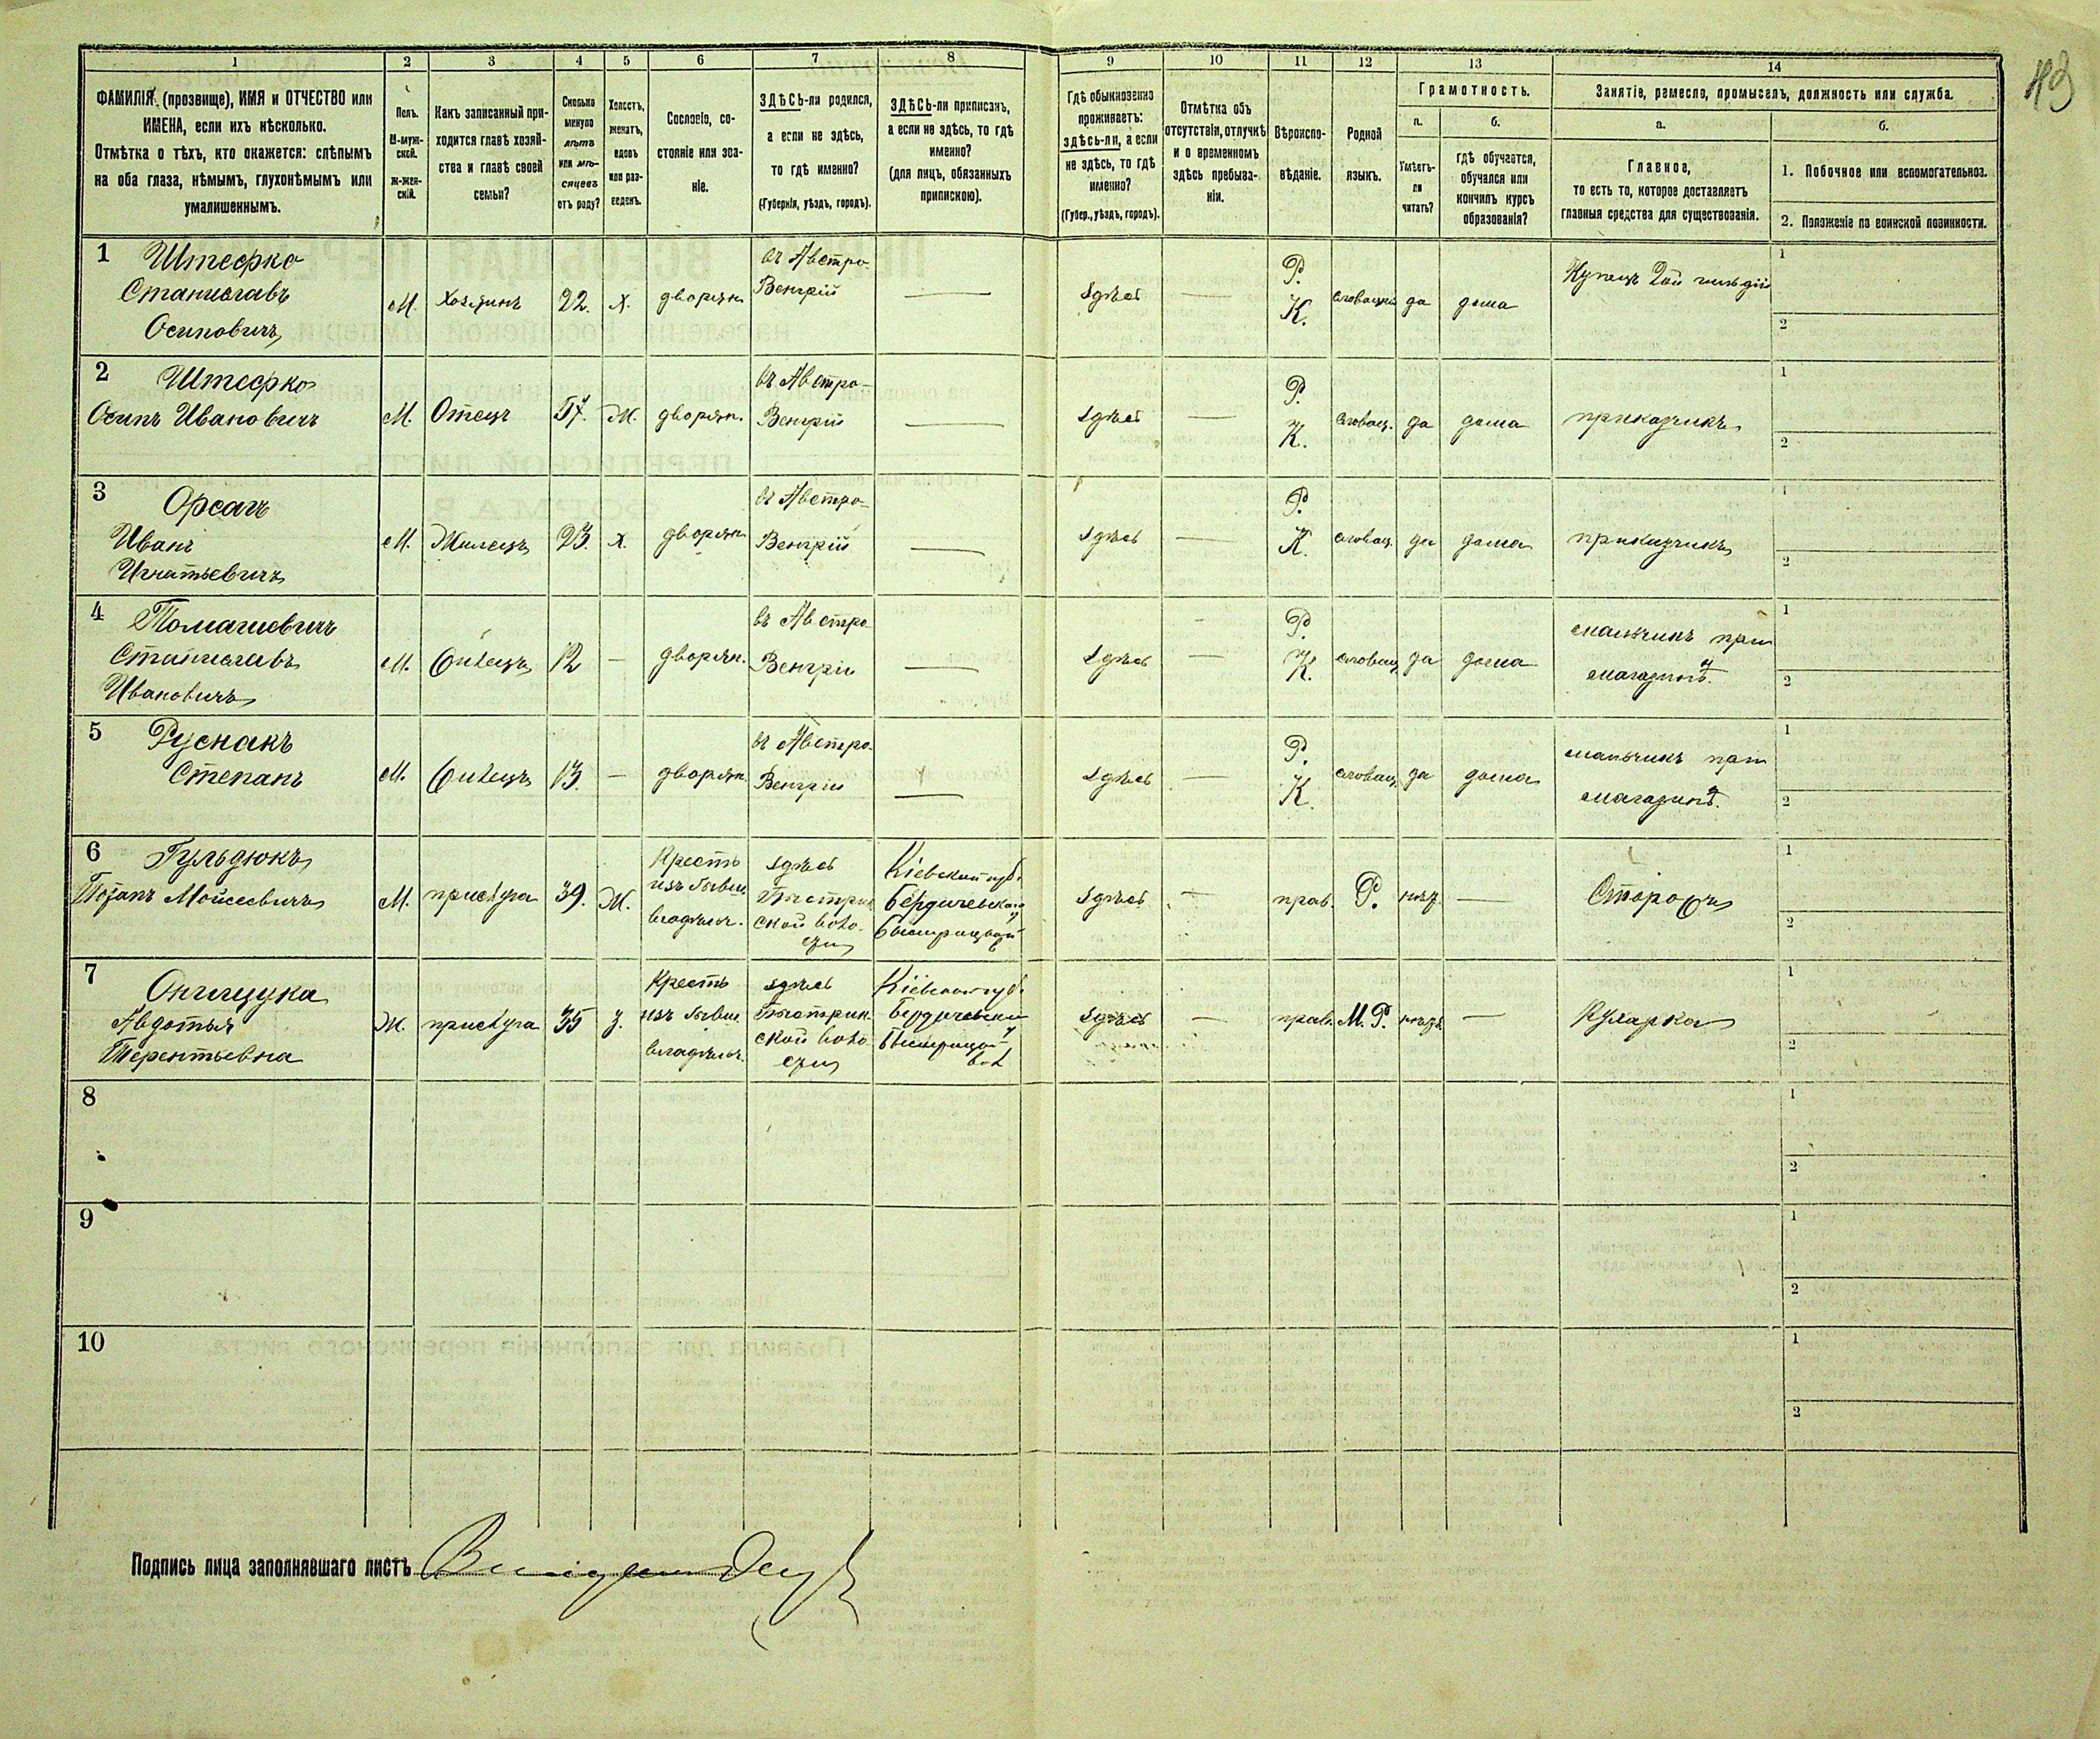 119
1 2 3 4 5 6 7 8 9 10 11 12 13 14
ФАМИЛІЯ (прозвище), ИМЯ и ОТЧЕСТВО или
ИМЕНА, если ихъ нѣсколько.
Отмѣтка о тѣхъ, кто окажется: слѣпымъ
на оба глаза, нѣмымъ, глухонѣмымъ или
умалишеннымъ.
Полъ.
М-муж-
ской.
Ж-жен-
скій.
Какъ записанный при-
ходится главѣ хозяй-
ства и главѣ своей
семьи?
Сколько
минуло
лѣтъ
или мѣ-
сяцевъ
отъ роду?
Холостъ,
женатъ,
вдовъ
или раз-
веденъ.
Сословіе, со-
стояніе или зва-
ніе.
ЗДѢСЬ-ли родился,
а если не здѣсь,
то гдѣ именно?
(Губернія, уѣздъ, городъ).
ЗДѢСЬ-ли приписанъ,
а если не здѣсь, то гдѣ
именно?
(для лицъ, обязанныхъ
припискою).
Гдѣ обыкновенно
проживаетъ:
здѣсь-ли, а если
не здѣсь, то гдѣ
именно?
(Губер., уѣздъ, городъ).
Отмѣтка объ
отсутствіи, отлучкѣ
и о временномъ
здѣсь пребыва-
ніи.
Вѣроиспо-
вѣданіе.
Родной
языкъ.
Грамотность.
а.
Умѣетъ-
ли
читать?
б.
гдѣ обучается,
обучался или
кончилъ курсъ
образованія?
Занятіе, ремесло, промыселъ, должность или служба.
а.
Главное,
то есть то, которое доставляетъ
главныя средства для существованія.
б.
1. Побочное или вспомогательное.
2. Положеніе по воинской повинности.
1 Штефко
Станиславъ
Осиповичъ
М.
Хозяинъ
22.
Х.
дворян
въ Австро-
Венгріи
—
Здѣсь
—
Р.
К.
словацкі
да
дома
Купецъ 2ой гильдіи
1
2
2 Штефко
Осипъ Ивановичъ
М.
Отецъ
57.
Ж.
дворян.
въ Австро-
Венгріи
—
Здѣсь
—
Р.
К.
словац.
да
дома
приказчикъ
1
2
3 Орсагъ
Иванъ
Игнатьевичъ
М.
Жилецъ
23.
Х.
дворян
въ Австро-
Венгріи
—
Здѣсь
—
Р.
К.
словац.
да
дома
приказчикъ
1
2
4 Томашевичъ
Станиславъ
Ивановичъ
М.
12
—
дворян.
въ Австро
Венгріи
—
Здѣсь
—
Р.
К.
словац
да
дома
мальчикъ при
магазинѣ.
1
2
5 Руснакъ
Степанъ
М.
13.
—
дворян.
въ Австро-
Венгріи
—
Здѣсь
—
Р.
К.
словац.
да
дома
мальчикъ при
магазинѣ.
1
2
6 Гульдюкъ
Мойсеевичъ
М.
прислуга
39.
Ж.
Крестъ
изъ бывш.
владѣльч.
здѣсь
ской воло-
сти
Кіевской губ.
Бердичевскаго
Здѣсь
—
прав.
Р.
нѣт.
—
Сторожъ
1
2
7 Онищука
Авдотья
Терентьевна
Ж.
прислуга
35
З.
Крестъ
изъ бывш.
владѣльч.
здѣсь
ской воло
сти
Кіевской губ.
Бердичевскаго
вол
Здѣсь
—
прав.
М. Р.
нѣтъ
—
Кухарка
1
2
8
1
2
9
1
2
10
1
2
Подпись лица заполнявшаго листъ